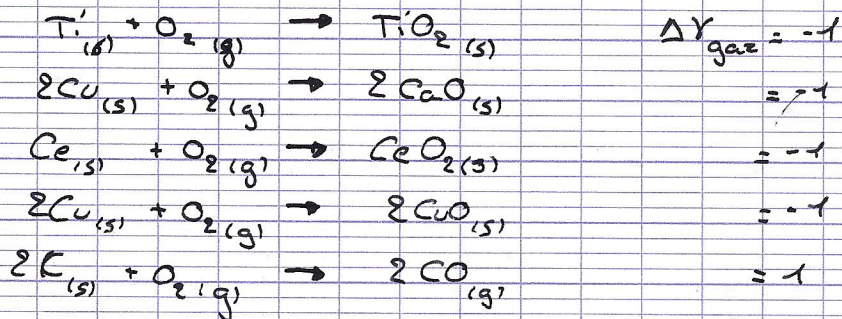 Ti(s) + O2 (g) → TiO2 (s) Δνgaz = -1
2Cu(s) + O2(g) → 2 CaO(s) = -1
Ce(s) + O2(g) → CeO2(s) = -1
2Cu(s) + O2(g) → 2CuO(s) = -1
2 C(s) + O2(g) → 2 CO(g) = 1